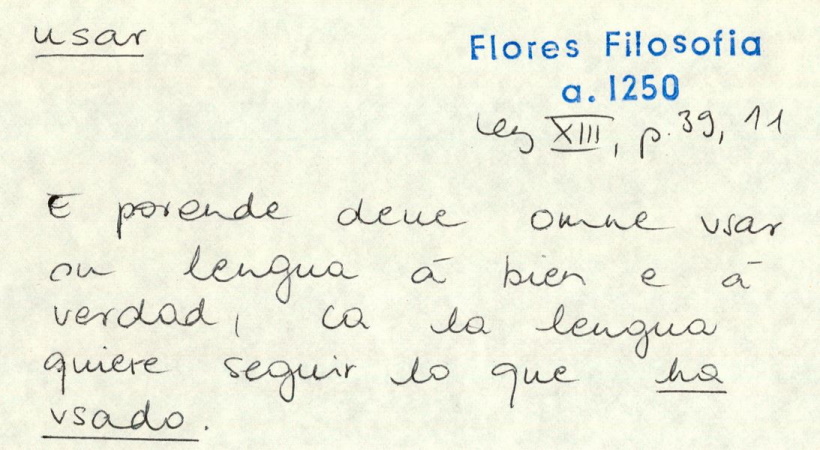 usar
Flores Filosofia
a. 1250
Ley XIII, p. 39, 11
E porende deue omne vsar
su lengua á bien e á
verdad, ca la lengua
quiere seguir lo que ha
vsado.